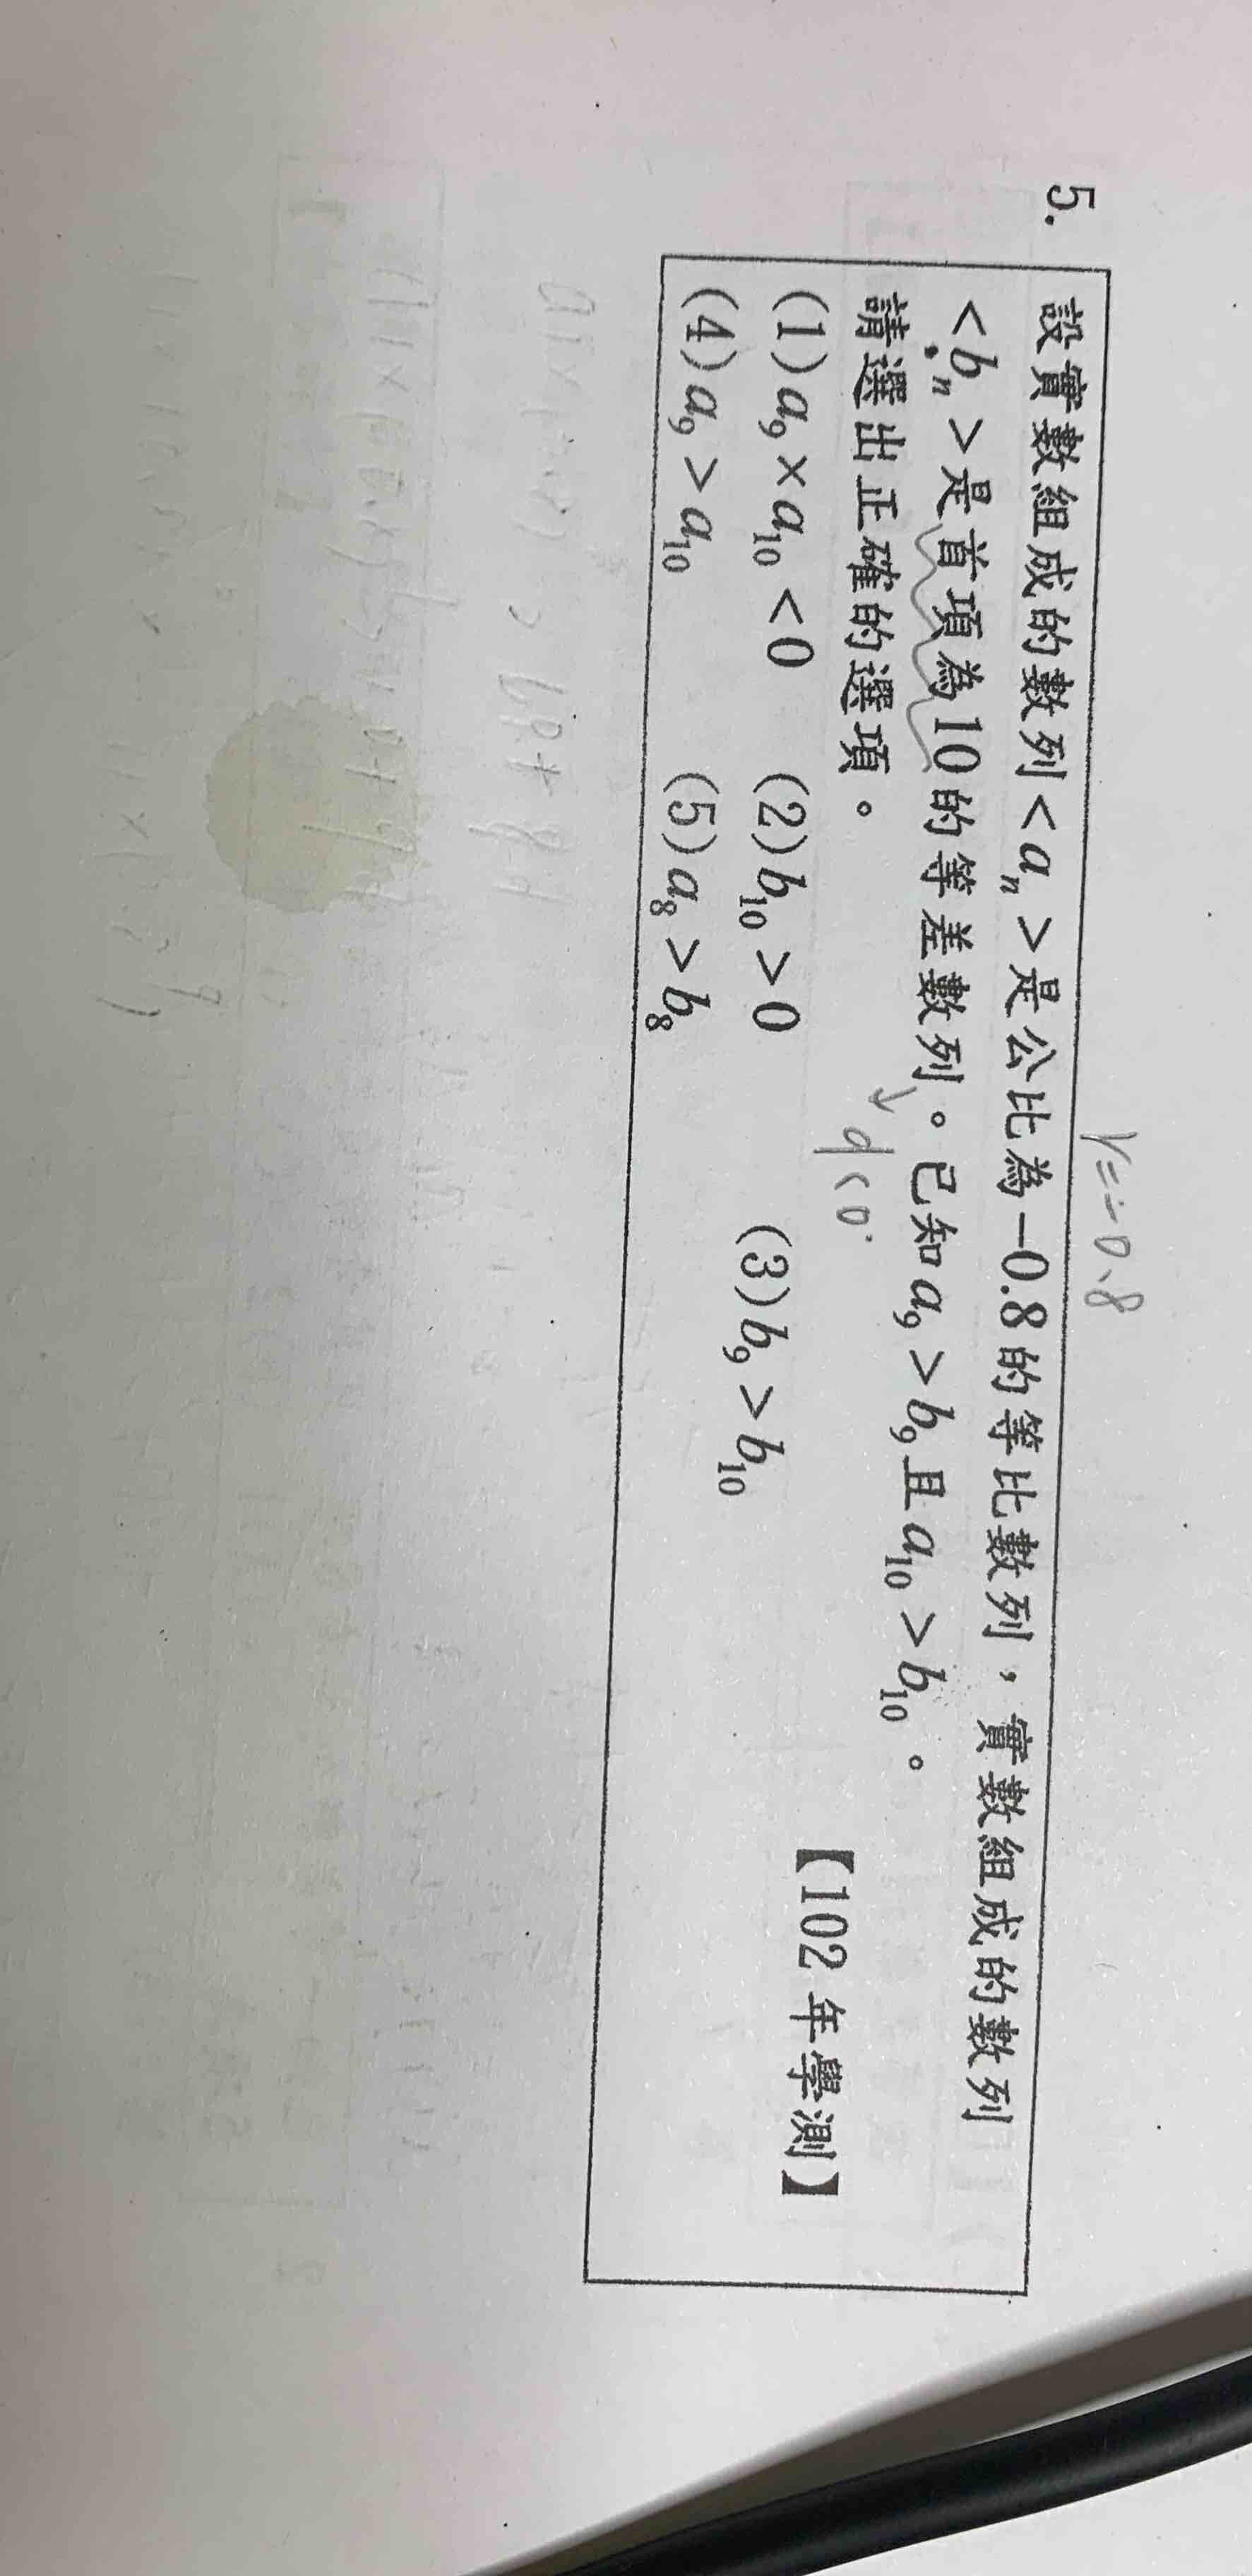 r=-0.8
5. 設實數組成的數列<aₙ>是公比為-0.8的等比數列，實數組成的數列
<bₙ>是首項為10的等差數列。已知a₉>b₉且a₁₀>b₁₀。
→d<0.
請選出正確的選項。
【102年學測】
(1)a₉×a₁₀<0 (2)b₁₀>0 (3)b₉>b₁₀
(4)a₉>a₁₀ (5)a₈>b₈